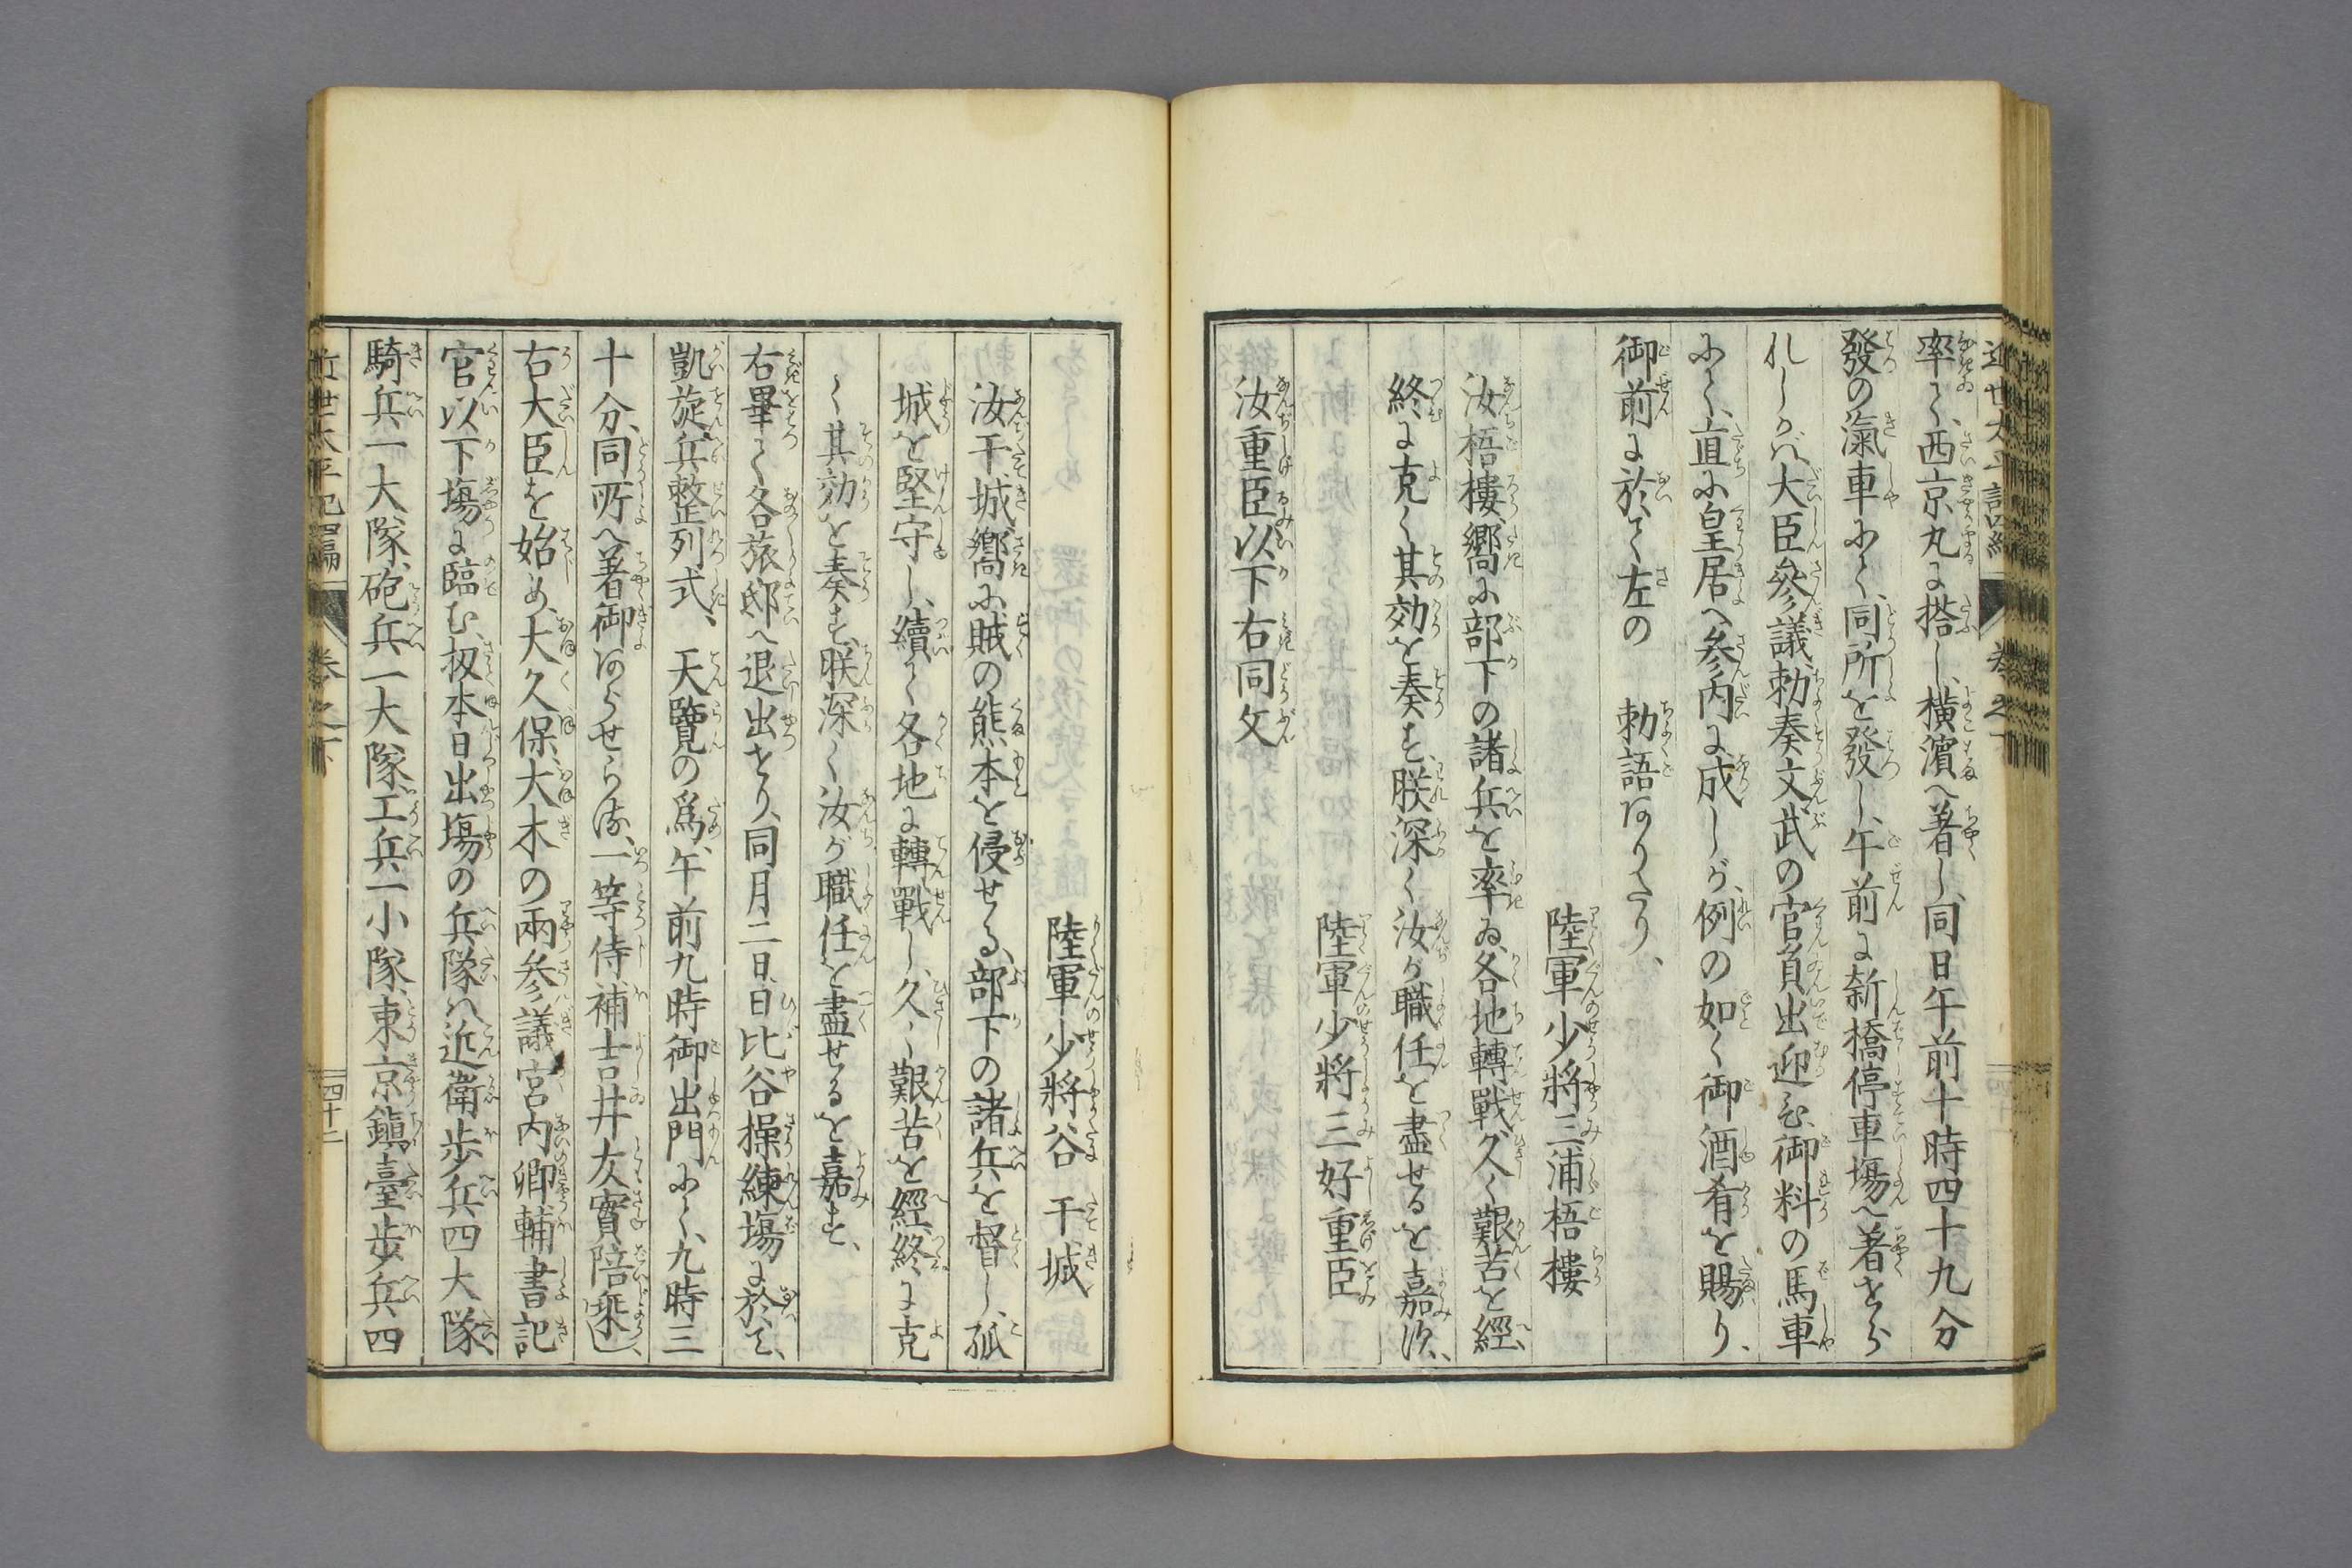 率て、西京丸に搭し、横濱へ着し、同日午前十時四十九分
發の滊車にて、同所を發し、午前に新橋停車塲へ着せら
れしかバ、大臣參議、勅奏文武の官員出迎ひ、御料の馬車
にて、直に皇居へ參内に成しが、例の如く御酒肴を賜り、
御前に於て左の　勅語ありたり、
陸軍少將三浦梧樓
汝梧樓、嚮に部下の諸兵を率ゐ、各地轉戰久く艱苦を經、
終に克く其効を奏す、朕深く汝が職任を盡せるを嘉す、
陸軍少將三好重臣
汝重臣以下右同文
陸軍少將谷　干城
汝干城、嚮に賊の熊本を侵せる、部下の諸兵を督し、孤
城を堅守し、續て各地に轉戰し、久く艱苦を經、終に克
く其効を奏す、朕深く汝が職任を盡せるを嘉す、
右畢て各旅邸へ退出せり、同月二日、日比谷操練塲に於て、
凱旋兵整列式、　天覽の爲、午前九時御出門にて、九時三
十分、同所へ着御あらせらる、一等侍補吉井友實陪乗し、
右大臣を始め、大久保、大木の兩參議、宮内卿輔書記
官以下塲に臨む、扨本日出塲の兵隊ハ近衛歩兵四大隊、
騎兵一大隊、砲兵一大隊、工兵一小隊、東京鎭臺歩兵四
近世太平記四編　巻之下　四十二